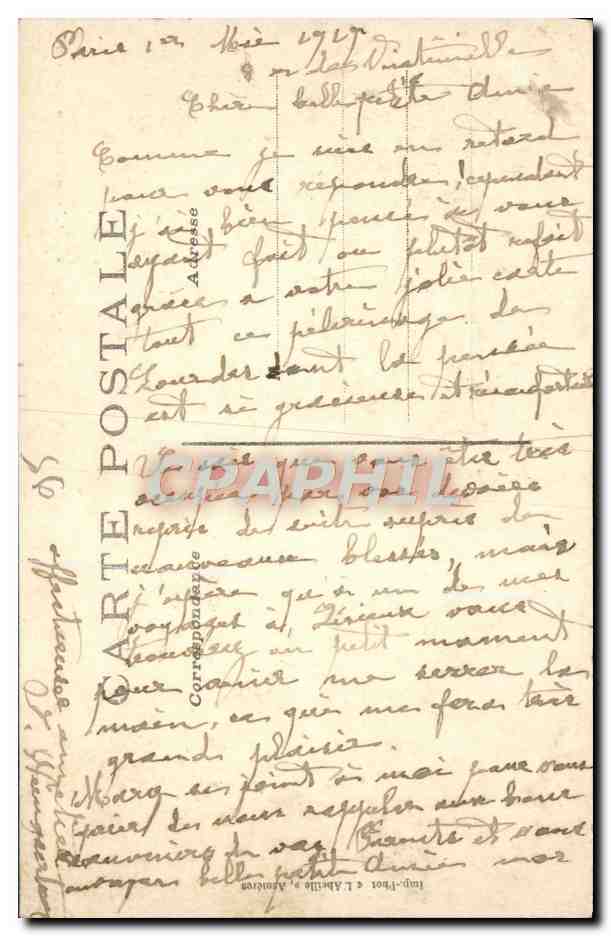 Paris 1er Mai 1917
Chère belle petite Amie
Comme je suis en retard
pour vous répondre, cependant
j'ai bien pensé à vous
ayant fait ou plutôt refait
grâce à votre jolie carte
tout ce pèlerinage de
Lourdes dont la pensée
est si gracieuse et réconfortante
que vous être très
par vos devoirs
repris de suite auprès de
nouveaux blessés, mais
j'espère qu'à un de mes
voyages à Lisieux vous
trouverez un petit moment
pour venir me serrer la
main, ce qui me fera très
grand plaisir.
se joint à moi pour vous
de nous rappeler aux bons
souvenirs de vos Parents et vous
belle petite Amie nos
affectueuses
CARTE POSTALE
Adresse
Correspondance
Imp.-Phot « L'Abeille », Asnières
CPARHIL